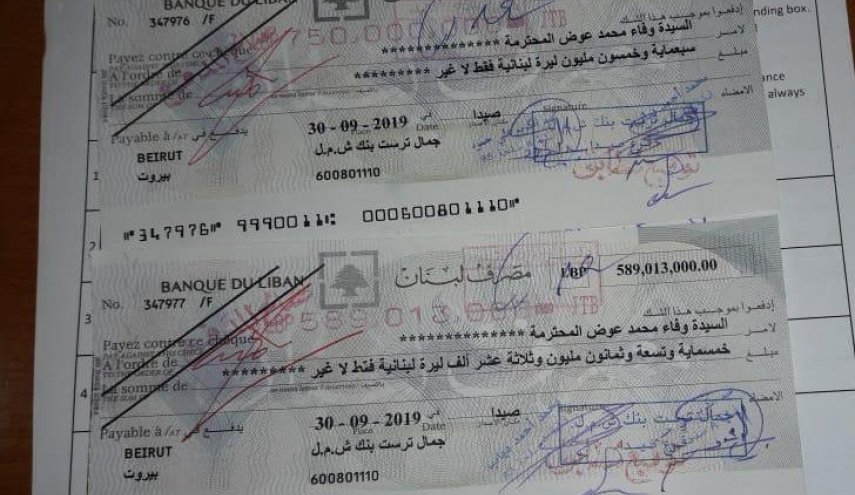 BANQUE DU LIBAN
No. 347976 /F
750,000,000
JTB
nding box.
إدفعوا بموجب هذا الشك
Payez contre ce chèque
لامر السيدة وفاء محمد عوض المحترمة **************
A l'ordre de
مبلغ سبعماية وخمسون مليون ليرة لبنانية فقط لا غير *********
La somme de
ance
always
الامضاء
Signature
Payable à /AT يدفع في
30 - 09 - 2019 في Date
صيدا
Place
BEIRUT
جمال ترست بنك ش.م.ل
بيروت
600801110
1
⑈347976⑈ 9990011⑆ 000600801110⑈
2
BANQUE DU LIBAN
مصرف لبنان
LBP 589,013,000.00
No. 347977 /F
LBP 589,013,000
JTB
3
إدفعوا بموجب هذا الشك
Payez contre ce chèque
لامر السيدة وفاء محمد عوض المحترمة **************
PAY AGAINST THIS CHECK
A l'ordre de
TO THE ORDER OF
مبلغ خمسماية وتسعة وثمانون مليون وثلاثة عشر ألف ليرة لبنانية فقط لا غير *********
La somme de
THE SUM OF
4
الامضاء
Signature
Payable à /AT يدفع في
30 - 09 - 2019 في Date
صيدا
Place
BEIRUT
جمال ترست بنك ش.م.ل
بيروت
600801110